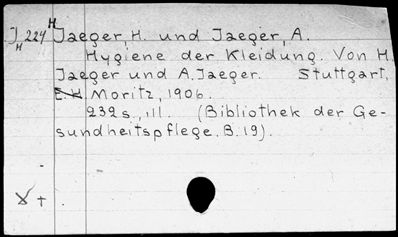 J H 224 H Jaeger, H. und Jaeger, A.
Hygiene der Kleidung. Von H.
Jaeger und A. Jaeger. Stuttgart,
E. H. Moritz, 1906.
232 s., ill. (Bibliothek der Ge-
sundheitspflege. B. 19).